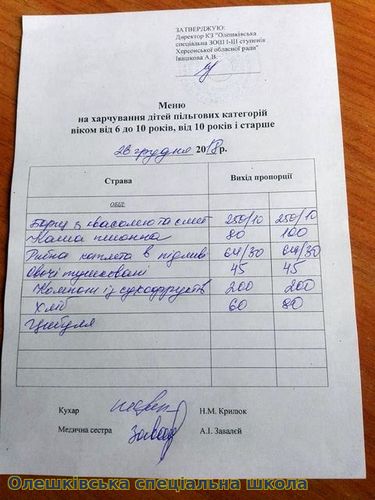 ЗАТВЕРДЖУЮ:
Директор КЗ "Олешківська
спеціальна ЗОШ І-ІІІ ступенів
Херсонської обласної ради"
Івашкова А.В.
Меню
на харчування дітей пільгових категорій
віком від 6 до 10 років, від 10 років і старше
26 грудня 2018р.
Страва Вихід пропорції
ОБІД:
Борщ з квасолею та смет 250/10 250/10
Каша пшонна 80 100
Рибна котлета в підлив 64/30 64/30
Овочі тушковані 45 45
Компот із сухофруктів 200 200
Хліб 60 80
Цибуля
Кухар Н.М. Крилюк
Медична сестра А.І. Завалєй
Олешківська спеціальна школа